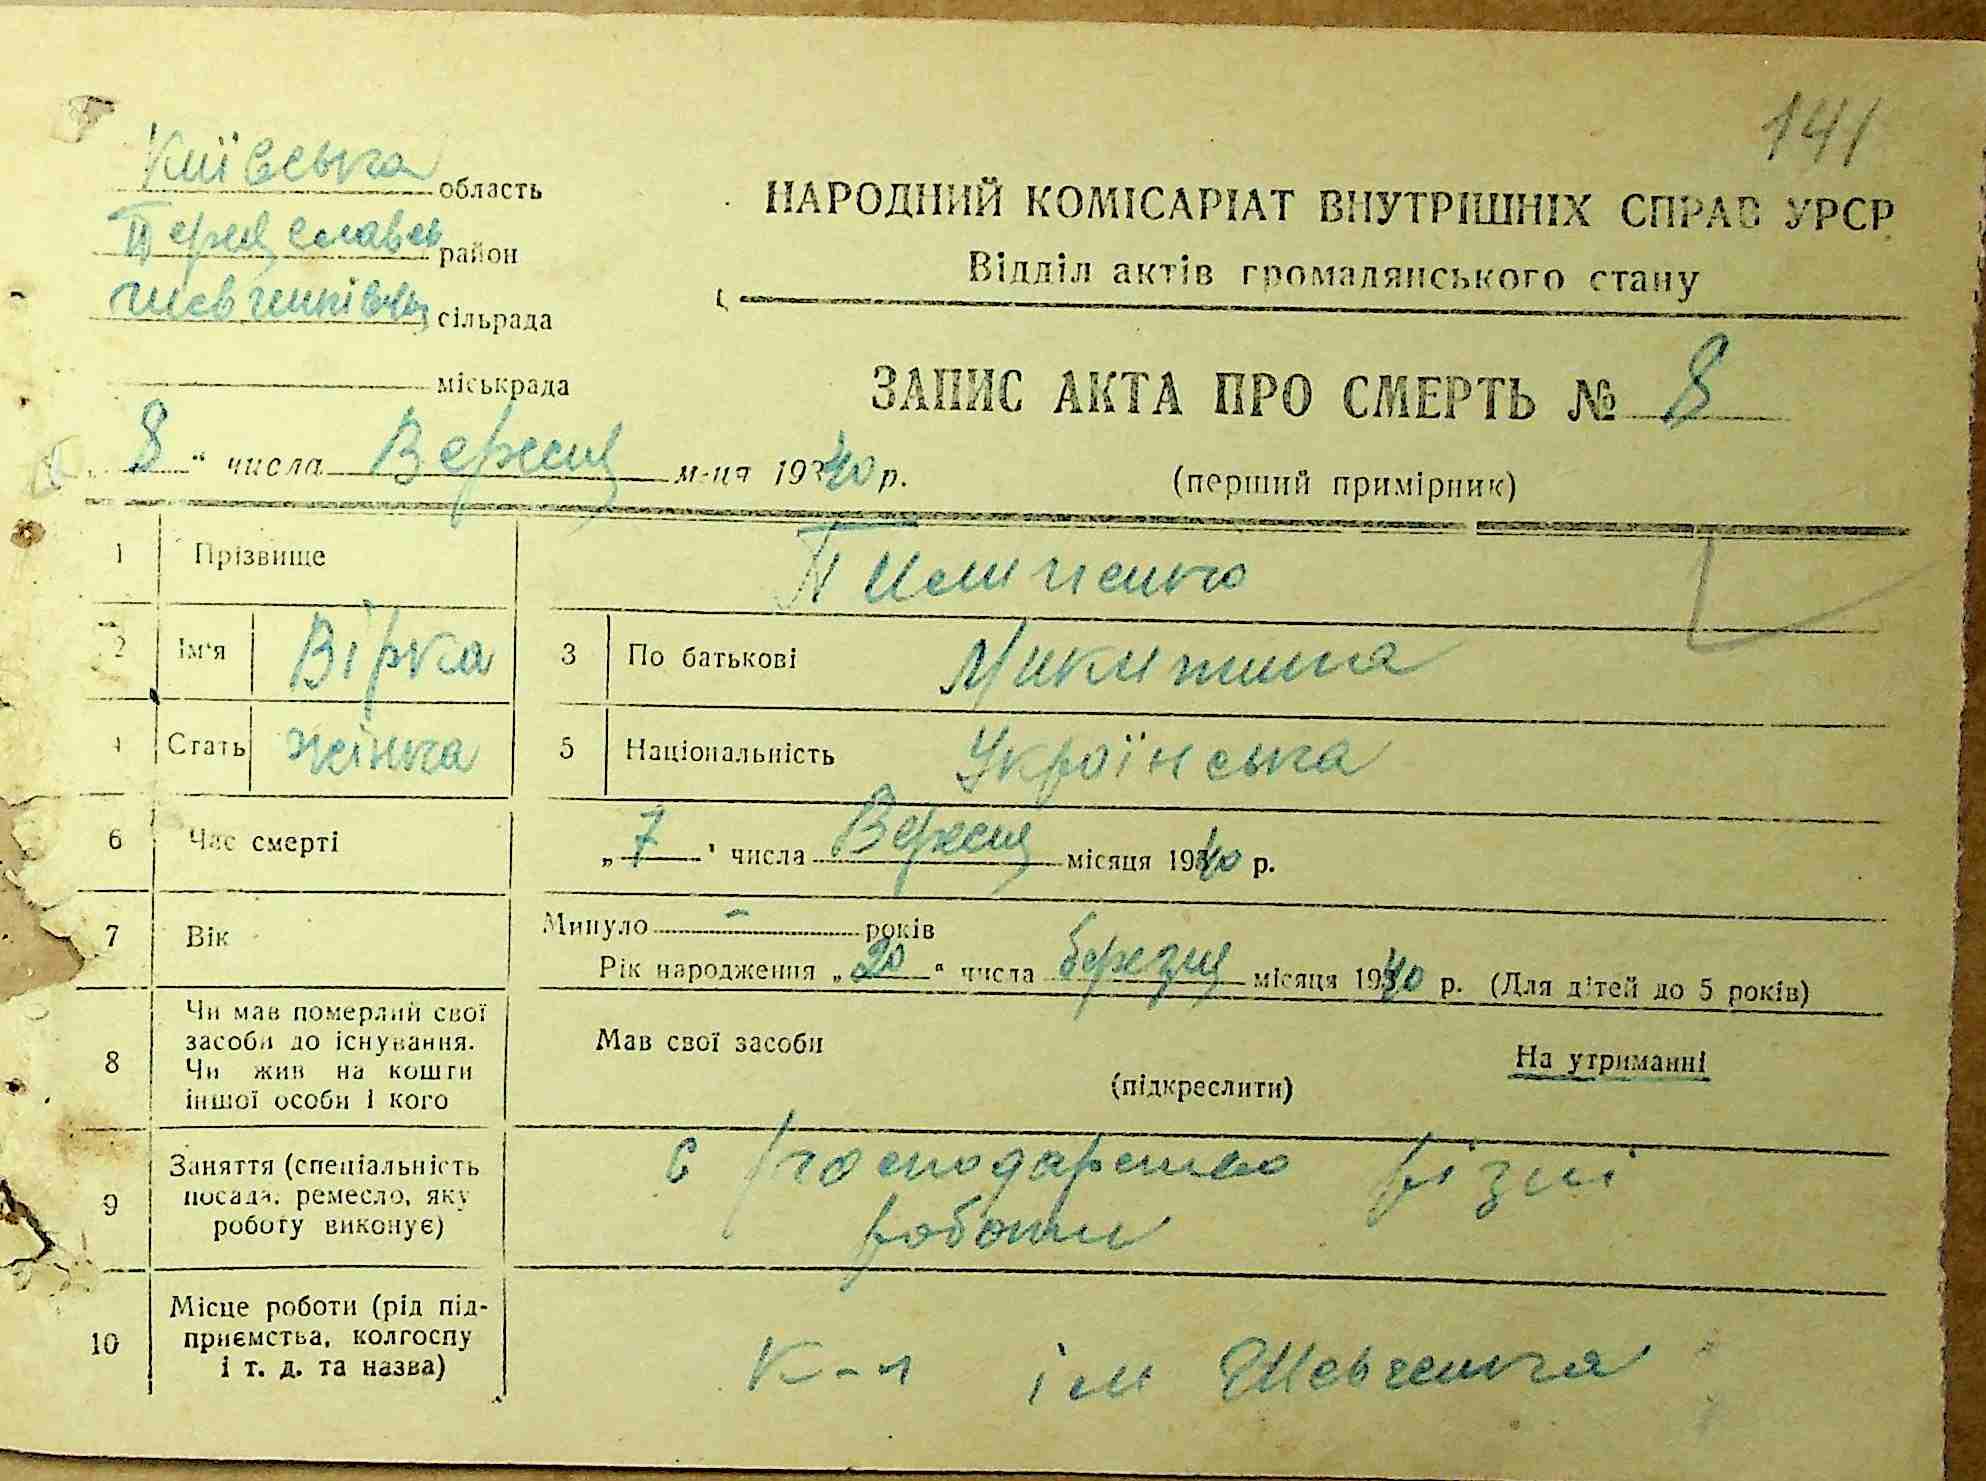 141
Київська область
Переяславсь район
Шевченківська сільрада
міськрада
НАРОДНИЙ КОМІСАРІАТ ВНУТРІШНІХ СПРАВ УРСР
Відділ актів громадянського стану
ЗАПИС АКТА ПРО СМЕРТЬ № 8
„ 8 “ числа Вересня м-ця 1940 р.
(перший примірник)
1 Прізвище
2 Ім'я Вірка 3 По батькові Микитина
4 Стать жінка 5 Національність Українська
6 Час смерті „ 7 “ числа Вересня місяця 1940 р.
7 Вік Минуло - років
Рік народження „ 20 “ числа березня місяця 1940 р. (Для дітей до 5 років)
8 Чи мав померлий свої засоби до існування. Чи жив на кошти іншої особи і кого
Мав свої засоби (підкреслити) На утриманні
9 Заняття (спеціальність посада, ремесло, яку роботу виконує)
с господарство фізні
роботи
10 Місце роботи (рід підприємства, колгоспу і т. д. та назва)
к-п ім Шевченка